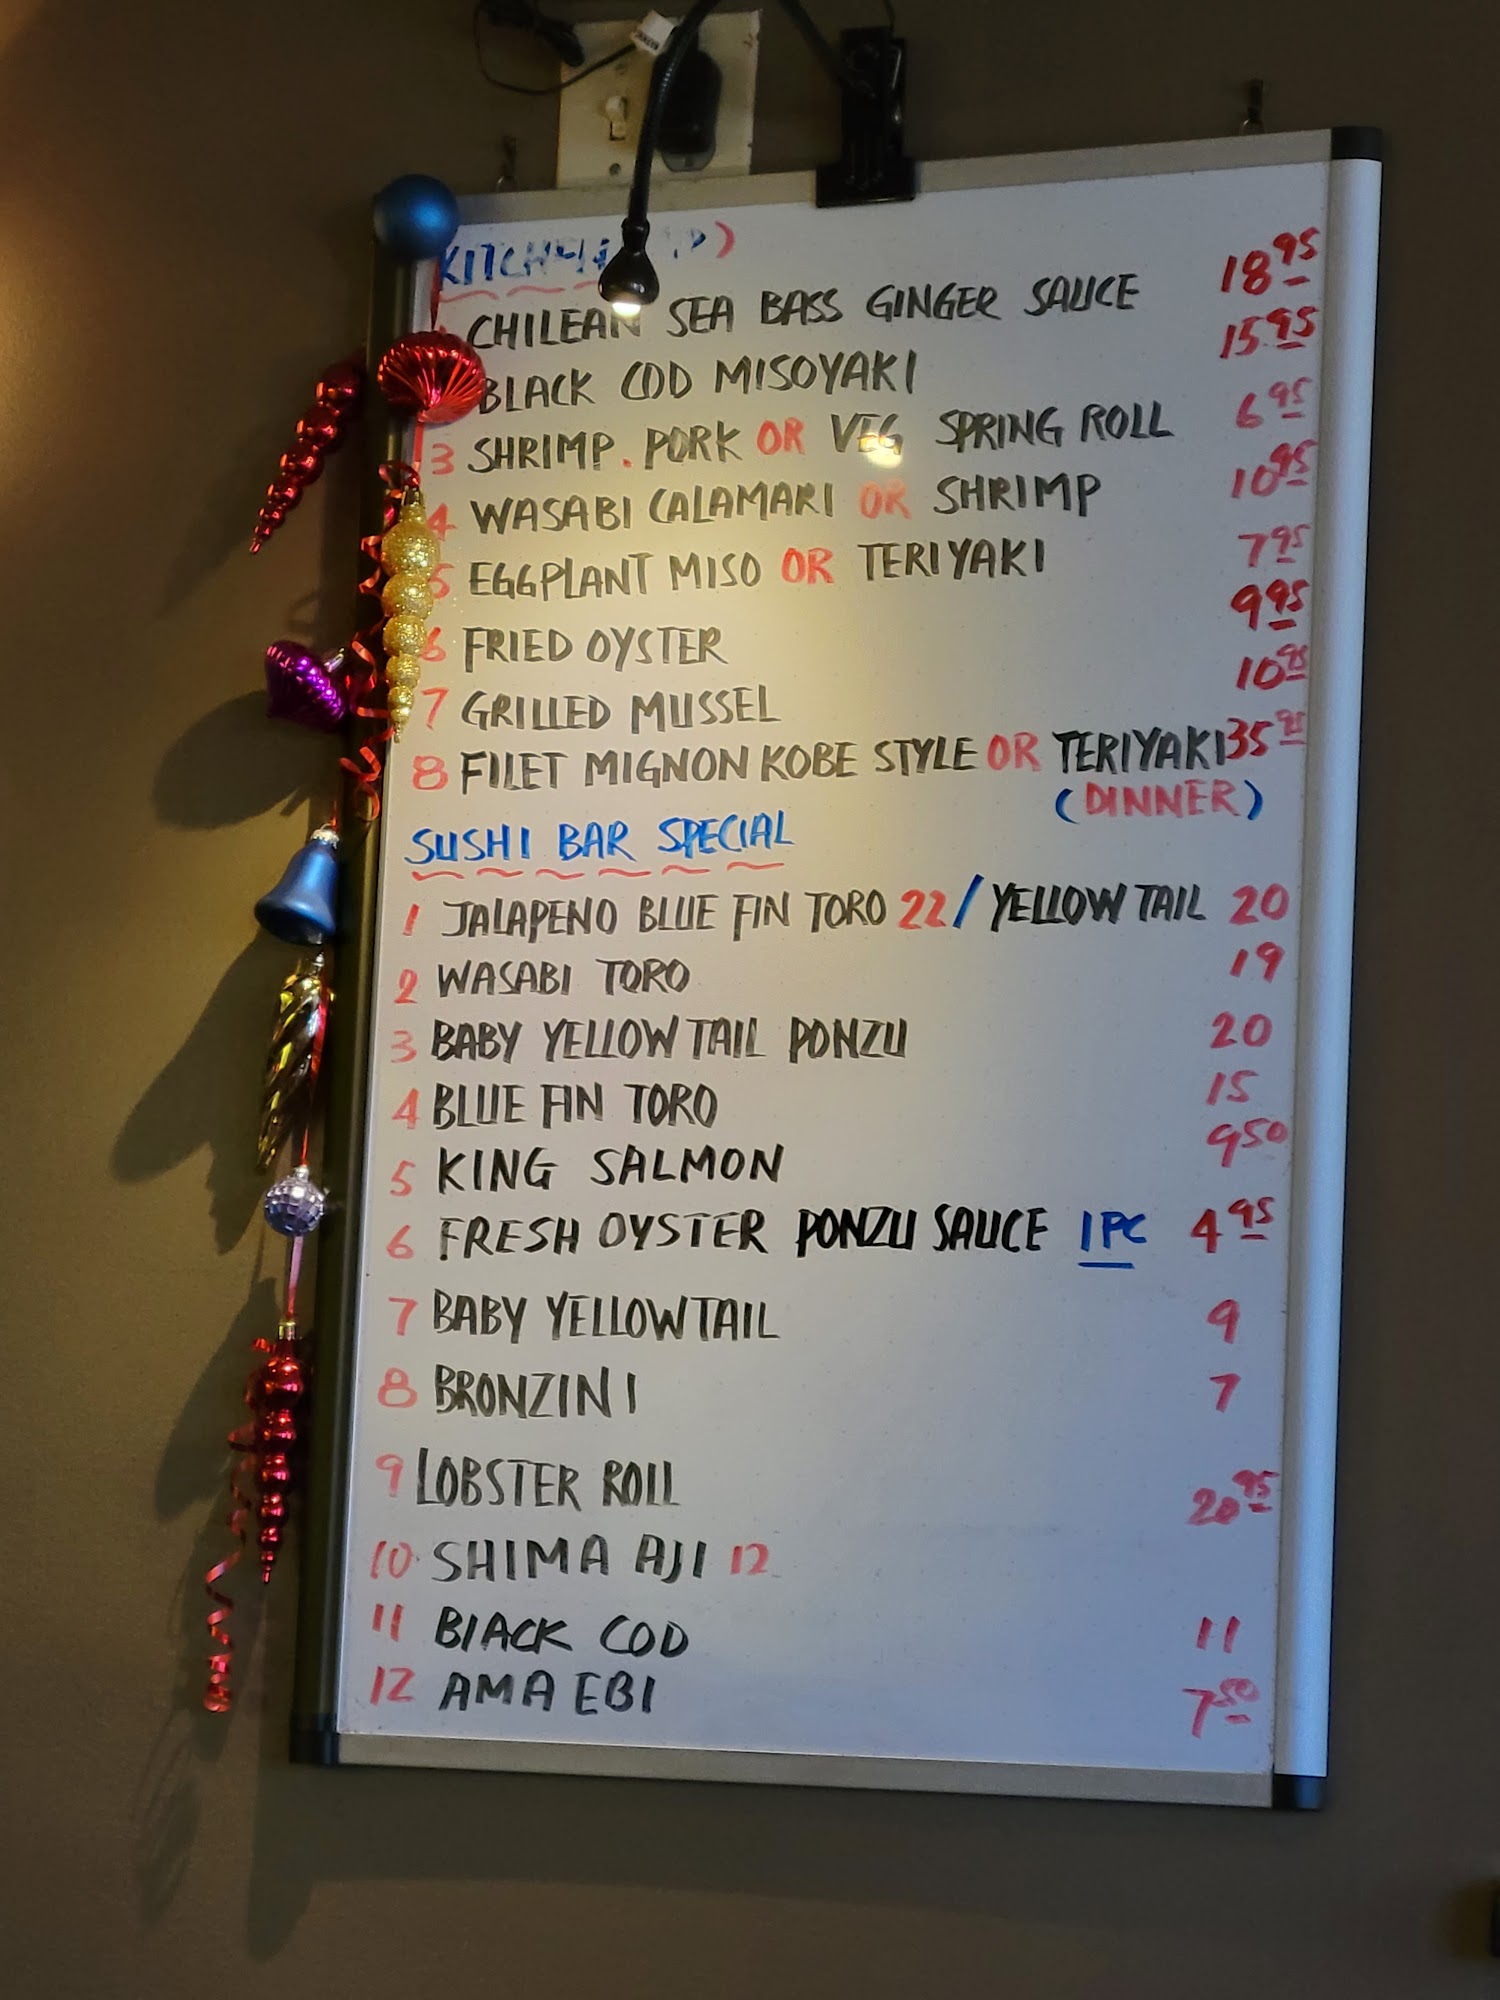 CHILEAN SEA BASS GINGER SAUCE 18 95
BLACK COD MISOYAKI 15 95
3 SHRIMP. PORK OR VEG SPRING ROLL 6 95
4 WASABI CALAMARI OR SHRIMP 10 95
5 EGGPLANT MISO OR TERIYAKI 7 95
6 FRIED OYSTER 9 95
7 GRILLED MUSSEL 10 95
8 FILET MIGNON KOBE STYLE OR TERIYAKI 35 95
(DINNER)
SUSHI BAR SPECIAL
1 JALAPENO BLUE FIN TORO 22 / YELLOW TAIL 20
2 WASABI TORO 19
3 BABY YELLOW TAIL PONZU 20
4 BLUE FIN TORO 15
5 KING SALMON 9 50
6 FRESH OYSTER PONZU SAUCE 1 PC 4 95
7 BABY YELLOWTAIL 9
8 BRONZINI 7
9 LOBSTER ROLL 20 95
10 SHIMA AJI 12
11 BLACK COD 11
12 AMA EBI 7 50